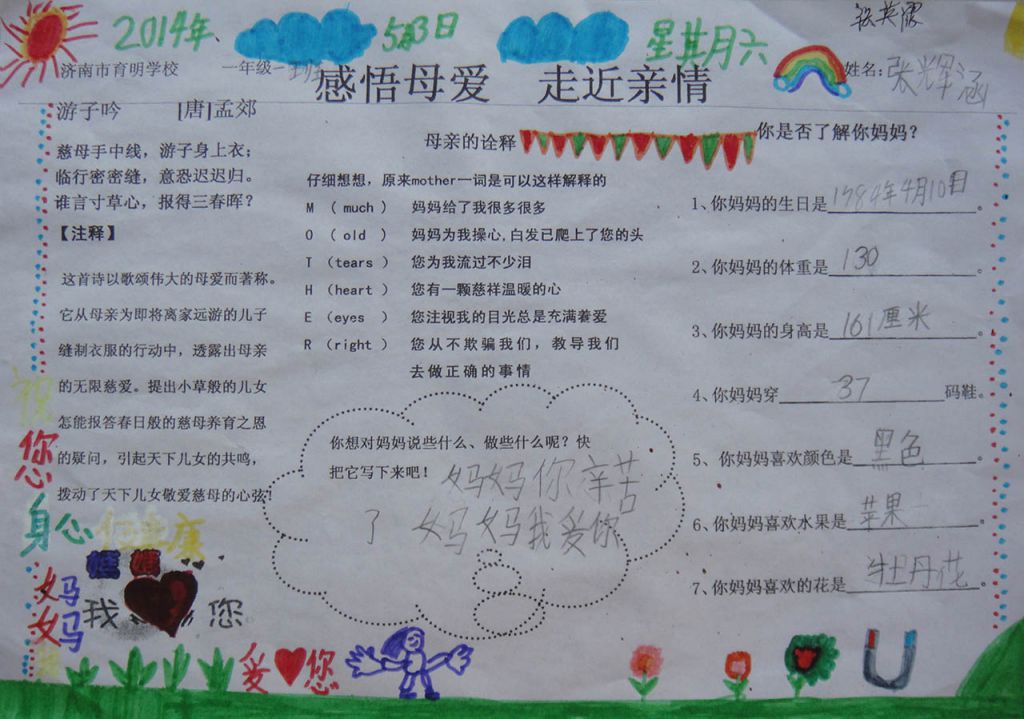 2014年 5月3日 星其月六
济南市育明学校 一年级一班
感悟母爱 走近亲情
姓名：张辉涵
游子吟 [唐]孟郊
慈母手中线，游子身上衣；
临行密密缝，意恐迟迟归。
谁言寸草心，报得三春晖？
【注释】
这首诗以歌颂伟大的母爱而著称。
它从母亲为即将离家远游的儿子
缝制衣服的行动中，透露出母亲
的无限慈爱。提出小草般的儿女
怎能报答春日般的慈母养育之恩
的疑问，引起天下儿女的共鸣，
拨动了天下儿女敬爱慈母的心弦！
母亲的诠释
仔细想想，原来mother一词是可以这样解释的
M （ much ） 妈妈给了我很多很多
O （ old ） 妈妈为我操心,白发已爬上了您的头
T （tears ） 您为我流过不少泪
H （heart ） 您有一颗慈样温暖的心
E （eyes ） 您注视我的目光总是充满着爱
R （right ） 您从不欺骗我们，教导我们
去做正确的事情
你想对妈妈说些什么、做些什么呢？快
把它写下来吧！
妈妈你辛苦
了 妈妈我爱你
你是否了解你妈妈？
1、你妈妈的生日是1984年4月10日。
2、你妈妈的体重是130。
3、你妈妈的身高是161厘米。
4、你妈妈穿37码鞋。
5、你妈妈喜欢颜色是黑色。
6、你妈妈喜欢水果是苹果。
7、你妈妈喜欢的花是牡丹花。
祝
您
身心健康
妈妈
妈妈
我 您
爱 您